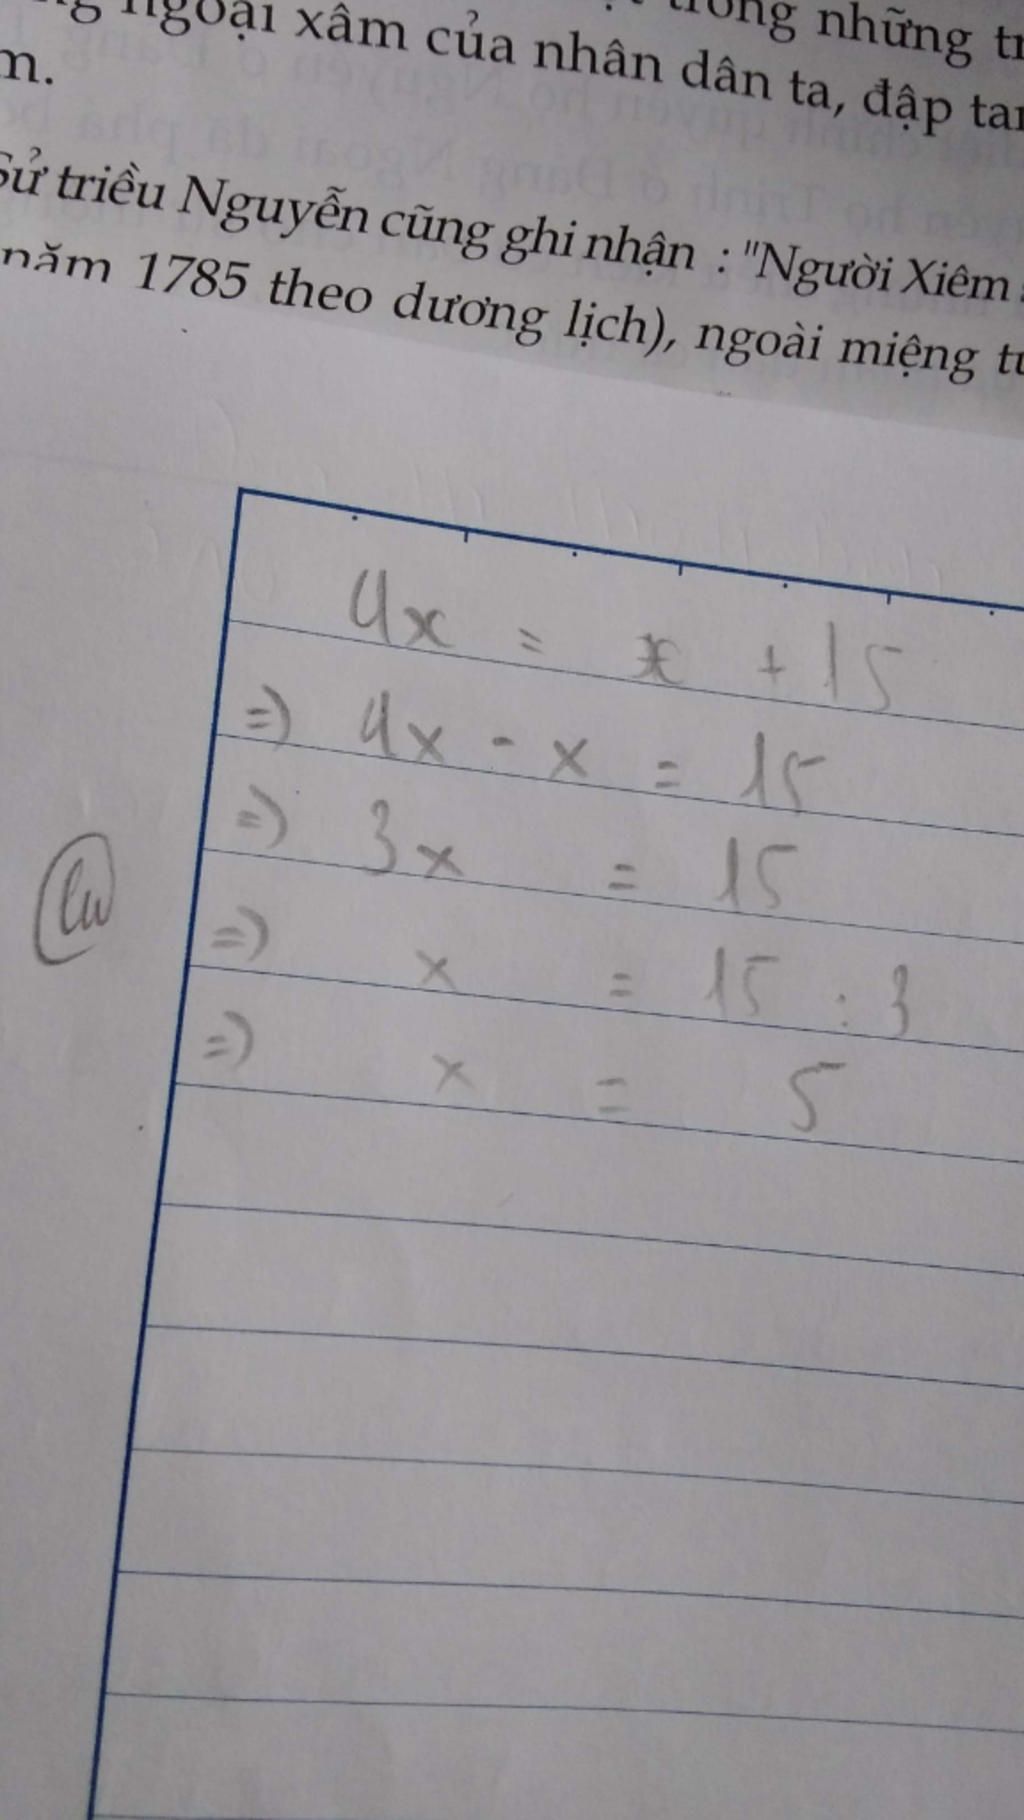 ngoại xâm của nhân dân ta, đập
trong những
m.
Sử triều Nguyễn cũng ghi nhận : "Người Xiêm
năm 1785 theo dương lịch), ngoài miệng
4x = x + 15
=) 4x - x = 15
=) 3x = 15
=) x = 15 : 3
=) x = 5